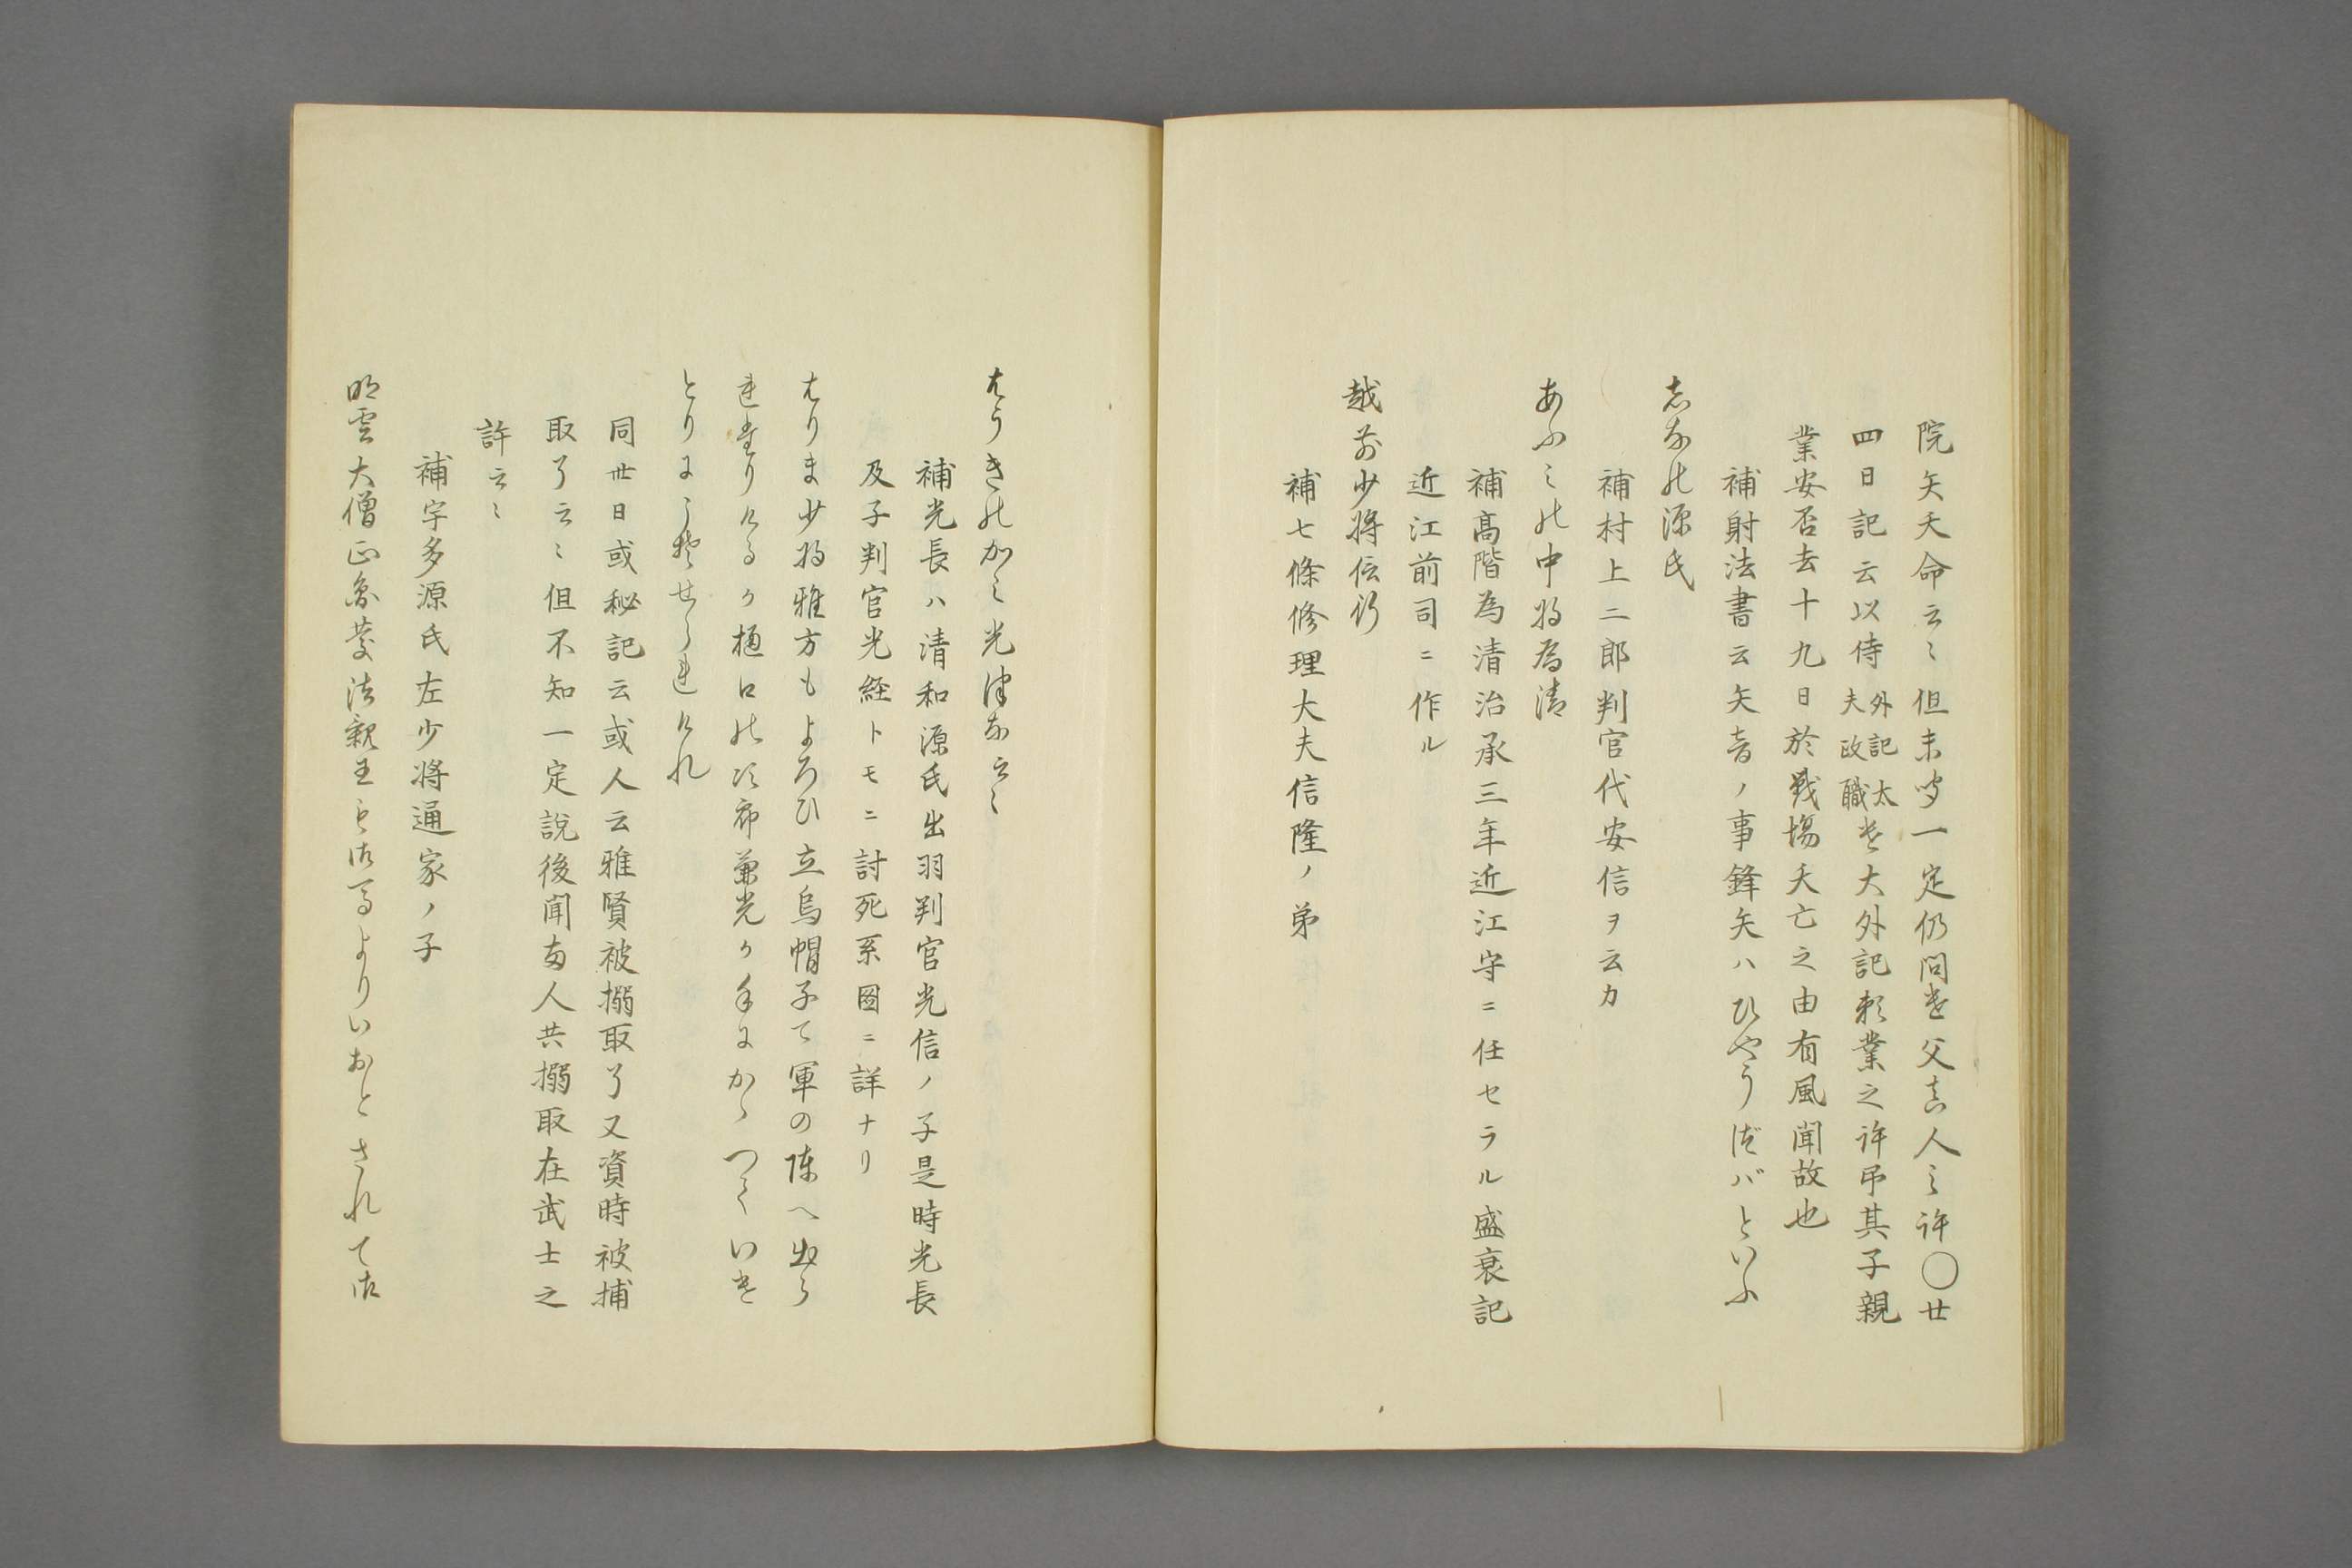 院矢夭命云〻但未聞一定仍問遣父真人之許〇廿
四日記云以侍外記太夫政職遣大外記頼業之許弔其子親
業安否去十九日於戦場夭亡之由有風聞故也
補射法書云矢音ノ事鋒矢ハひやうづバといふ
志なの源氏
補村上二郎判官代安信ヲ云カ
あふみの中将為清
補高階為清治承三年近江守ニ任セラル盛衰記
近江前司ニ作ル
越前少将信行
補七條修理大夫信隆ノ弟
はうきのかみ光津な云〻
補光長ハ清和源氏出羽判官光信ノ子是時光長
及子判官光経トモニ討死系図ニ詳ナリ
はりま少将雅方もよろひ立烏帽子て軍の陳へ出ら
れたりけるか樋口の次郎兼光か手にかゝつていけ
とりにこそせられけれ
同丗日或秘記云或人云雅賢被搦取了又資時被捕
取了云〻但不知一定説後聞両人共搦取在武士之
許云〻
補宇多源氏左少将通家ノ子
明雲大僧正円慶法親王も御馬よりいおとされて御